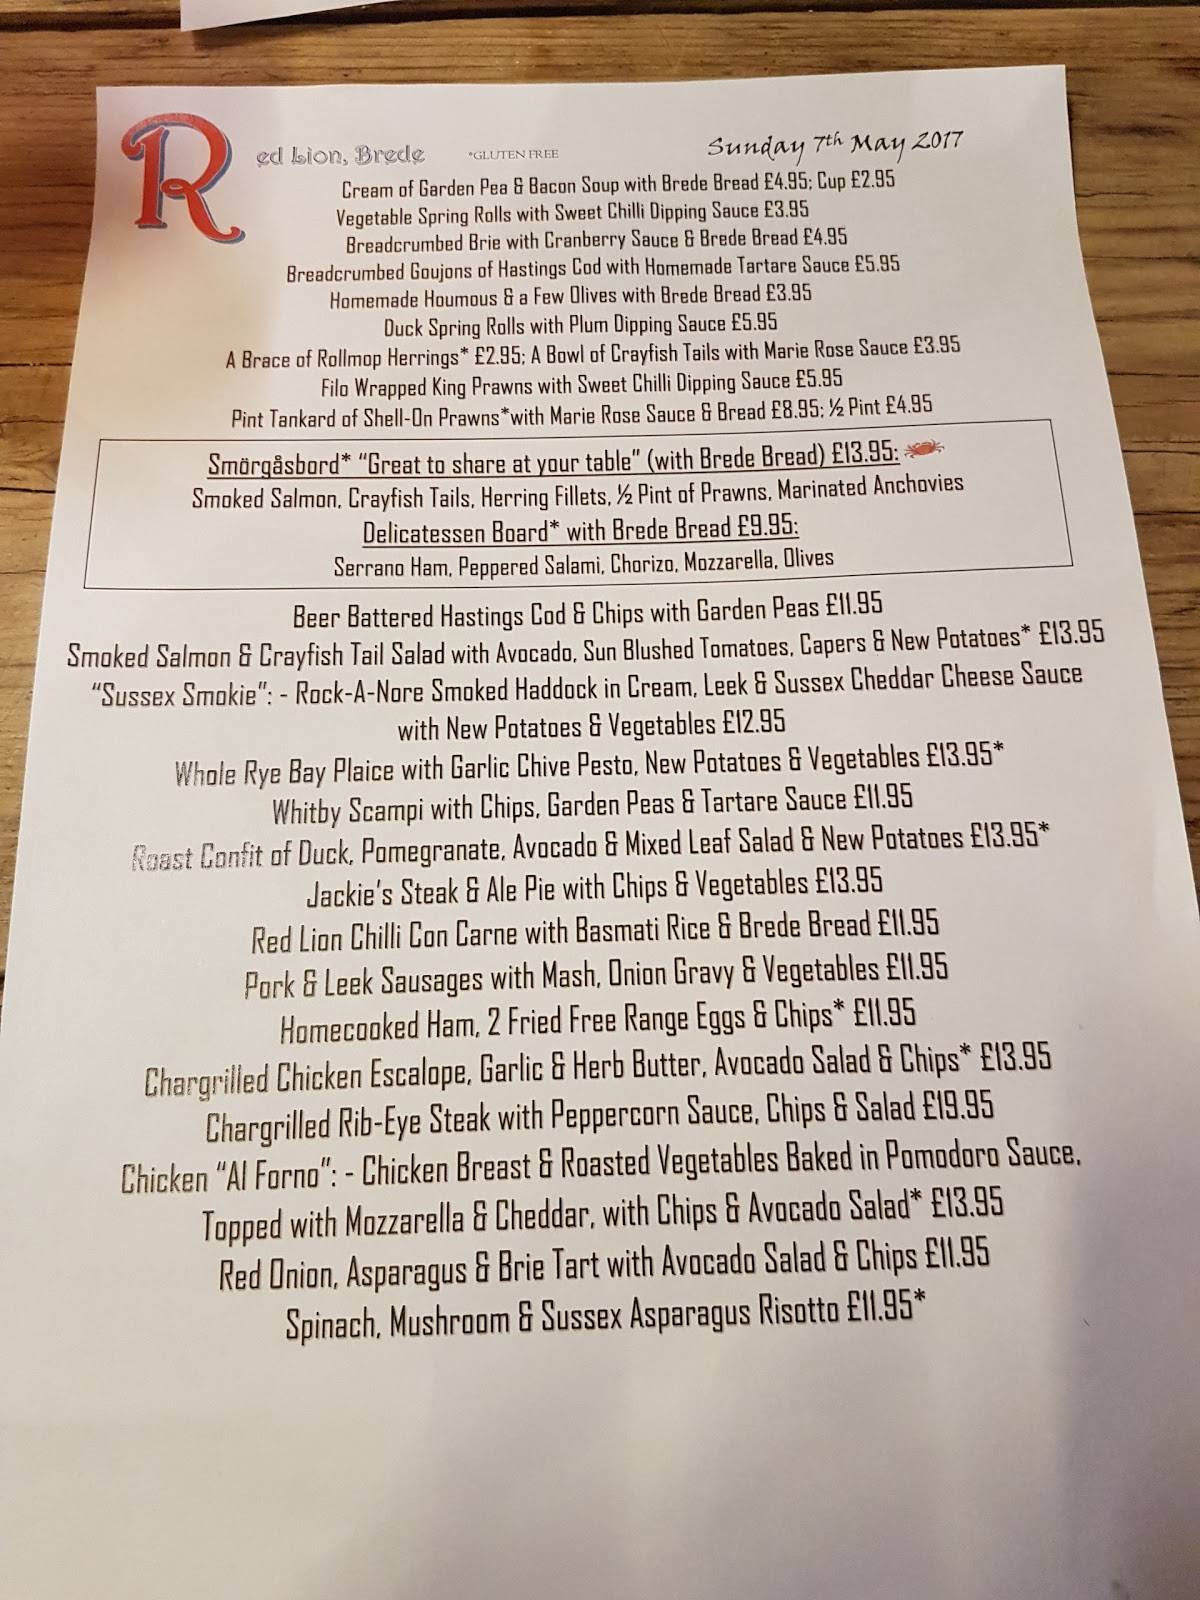 Red Lion, Brede *GLUTEN FREE Sunday 7th May 2017
Cream of Garden Pea & Bacon Soup with Brede Bread £4.95; Cup £2.95
Vegetable Spring Rolls with Sweet Chilli Dipping Sauce £3.95
Breadcrumbed Brie with Cranberry Sauce & Brede Bread £4.95
Breadcrumbed Goujons of Hastings Cod with Homemade Tartare Sauce £5.95
Homemade Houmous & a Few Olives with Brede Bread £3.95
Duck Spring Rolls with Plum Dipping Sauce £5.95
A Brace of Rollmop Herrings* £2.95; A Bowl of Crayfish Tails with Marie Rose Sauce £3.95
Filo Wrapped King Prawns with Sweet Chilli Dipping Sauce £5.95
Pint Tankard of Shell-On Prawns*with Marie Rose Sauce & Bread £8.95; ½ Pint £4.95
Smörgåsbord* “Great to share at your table” (with Brede Bread) £13.95:
Smoked Salmon, Crayfish Tails, Herring Fillets, ½ Pint of Prawns, Marinated Anchovies
Delicatessen Board* with Brede Bread £9.95:
Serrano Ham, Peppered Salami, Chorizo, Mozzarella, Olives
Beer Battered Hastings Cod & Chips with Garden Peas £11.95
Smoked Salmon & Crayfish Tail Salad with Avocado, Sun Blushed Tomatoes, Capers & New Potatoes* £13.95
“Sussex Smokie”: - Rock-A-Nore Smoked Haddock in Cream, Leek & Sussex Cheddar Cheese Sauce
with New Potatoes & Vegetables £12.95
Whole Rye Bay Plaice with Garlic Chive Pesto, New Potatoes & Vegetables £13.95*
Whitby Scampi with Chips, Garden Peas & Tartare Sauce £11.95
Roast Confit of Duck, Pomegranate, Avocado & Mixed Leaf Salad & New Potatoes £13.95*
Jackie’s Steak & Ale Pie with Chips & Vegetables £13.95
Red Lion Chilli Con Carne with Basmati Rice & Brede Bread £11.95
Pork & Leek Sausages with Mash, Onion Gravy & Vegetables £11.95
Homecooked Ham, 2 Fried Free Range Eggs & Chips* £11.95
Chargrilled Chicken Escalope, Garlic & Herb Butter, Avocado Salad & Chips* £13.95
Chargrilled Rib-Eye Steak with Peppercorn Sauce, Chips & Salad £19.95
Chicken “Al Forno”: - Chicken Breast & Roasted Vegetables Baked in Pomodoro Sauce,
Topped with Mozzarella & Cheddar, with Chips & Avocado Salad* £13.95
Red Onion, Asparagus & Brie Tart with Avocado Salad & Chips £11.95
Spinach, Mushroom & Sussex Asparagus Risotto £11.95*